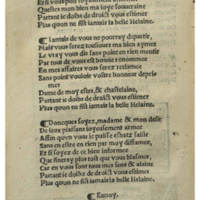 Quelque mon bien ma ioye souueraine
Partant ie doibs de droict vous estimer
Plus quon ne fist iamais la belle Helaine.
Iamais de vous ne pourray departir,
Mais vous feray tousiours ma bien aymee
Le vray vous dis sans point en rien mentir
Par tout de vous est bonne renommee
En mes affaires vous serez reclamee
Sans point vouloir vostre honneur deprimer
Dame de moy estes, & chastelaine,
Partant ie doibs de droict vous estimer
Plus quon ne fist iamais la belle Helaine.
Doncques soyez, madame & mon desir
De sens plaisant ioyeusement armee
Affin quen vous ie puisse estatz saisir
Sans estre en rien par moy diffamee,
Et si soyez de ce bien informee
Que
Car en vous sont tous mes sens & alaine
Partant ie doibs de droict vous estimer
Plus quon ne fist iamais la belle Helaine.